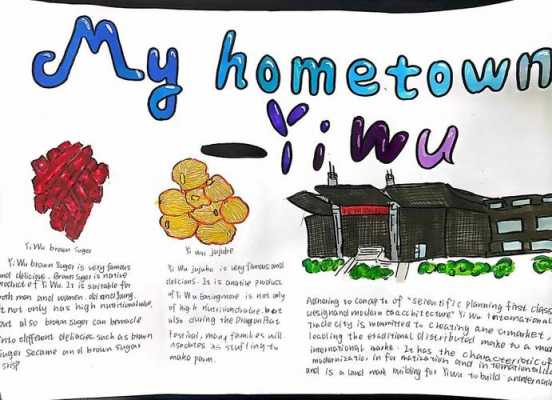 My hometown
Yi Wu
Yi Wu brown suger
Yi wu jujube
Yi Wu brown suger is very famous
and delicious. Brown suger is native
product of Yi Wu. It is suitable for
both men and women. old and young.
It not only has high nutritional value,
but also brown sugar can be made
into different delicacies such as brown
suger sesame and brown sugar
Yi Wu jujube is very famous and
delicions. It is a native product
of Yi Wu is not only
of high nutritional value. but
also during the Dragon Boat
Festival, many families will
as stuffing to
make
to concept of "scientific planning first class
design and modern architecture" Yi Wu International
Trade city is committed to creating and market,
leading the traditional distributed
international market. It has the characteristic of
modernization in for matization and internationaliz
and is a land mark building for Yiwu to build an internation